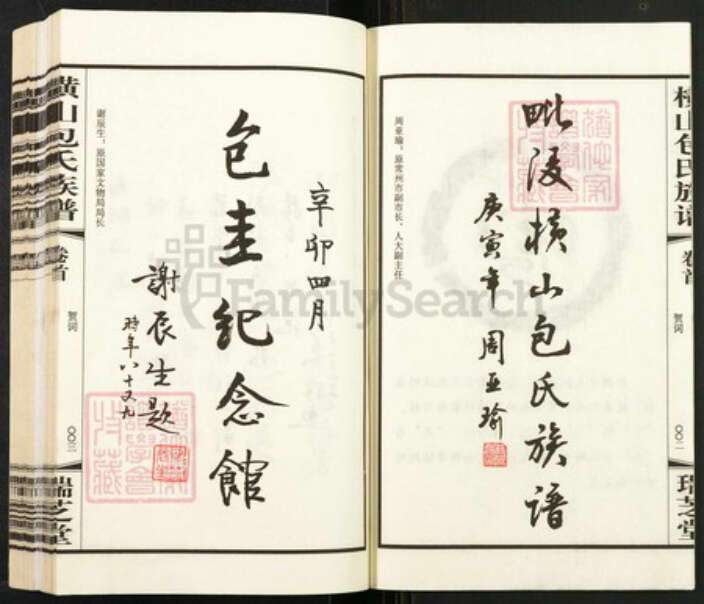 横山包氏族谱
卷首
贺词
〇〇二
瑞芝堂
周亚瑜，原常州市副市长、人大副主任
毗陵横山包氏族谱
庚寅年 周亚瑜
辛卯四月
包圭纪念館
謝辰生题
時年八十又九
谢辰生，原国家文物局局长
横山包氏族譜
卷首
贺词
〇〇三
瑞芝堂
FamilySearch